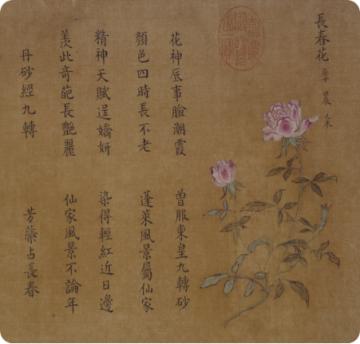 長春花
花神底事臉潮霞　曾服東皇九轉砂
顏色四時長不老　蓬萊風景屬仙家
精神天賦逞嬌妍　染得輕紅近日邊
羨此奇葩長艷麗　仙家風景不論年
丹砂經九轉　芳蘂占長春